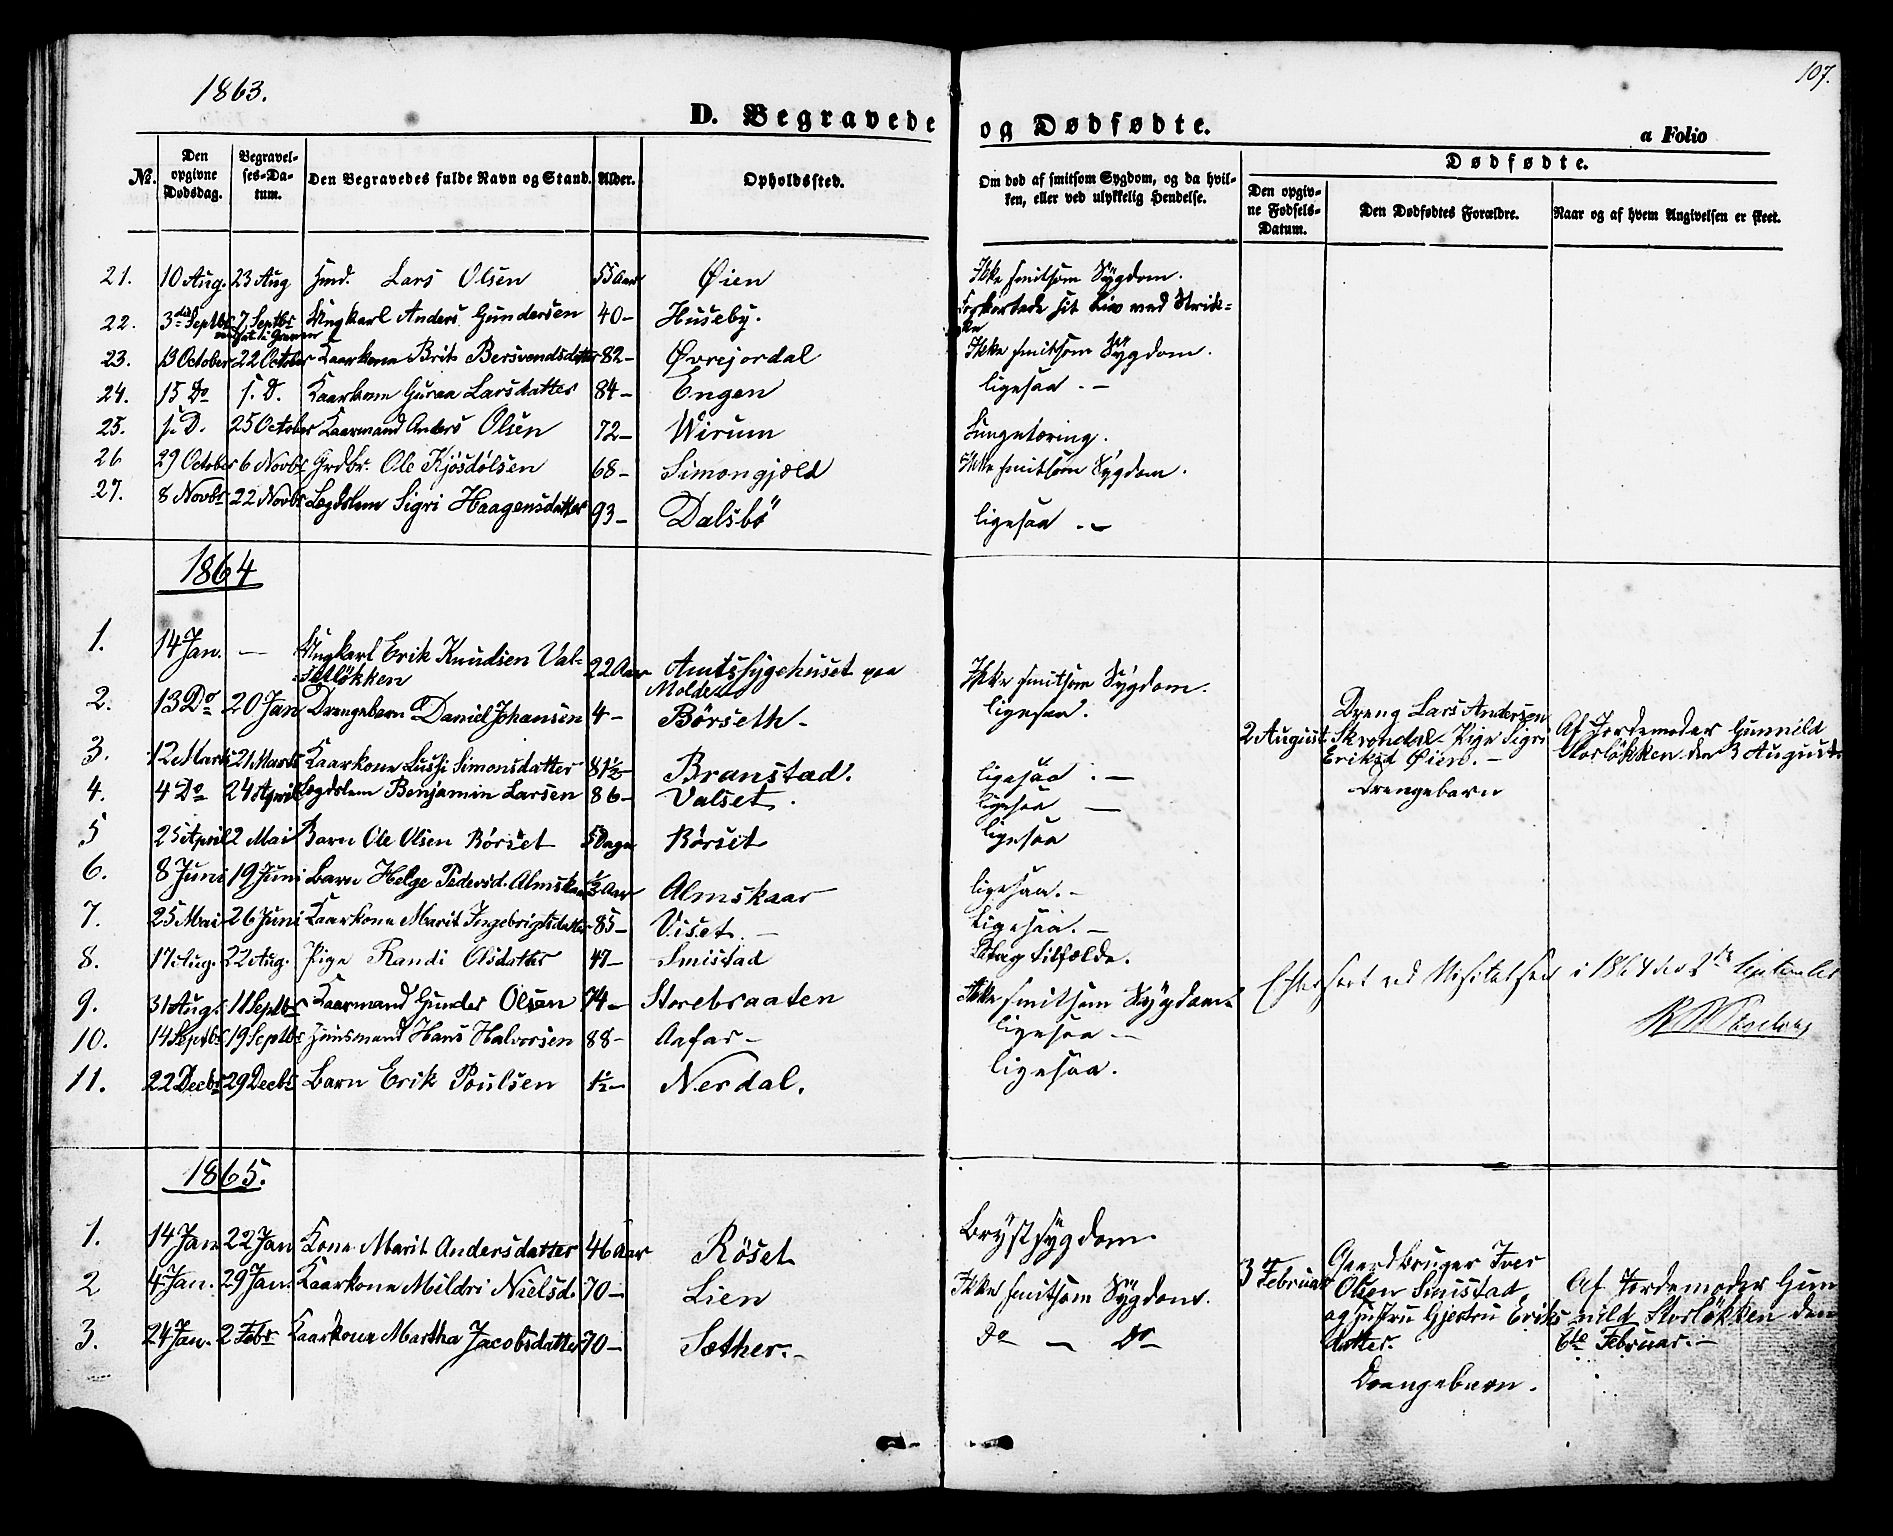 1863.
107.
D. Begravede og Dødfødte.
a Folio
№.
Den opgivne Dødsdag.
Begravelses-Datum.
Den Begravedes fulde Navn og Stand.
Alder.
Opholdssted.
Om død af smitsom Sygdom, og da hvilken, eller ved ulykkelig Hendelse.
Dødfødte.
Den opgivne Fødsels-Datum.
Den Dødfødtes Forældre.
Naar og af hvem Angivelsen er skeet.
21. 10 Aug. 23 Aug Lars Olsen 55 Aar Øien Ikke smitsom Sygdom.
22. 3die Septbr 7 Septbr Ungkarl Anders Gundersen 40 - Huseby. Forkortede sit Liv ved Strikke
23. 13 October 22 October Kaarkone Brit Bersvendsdatter 82 - Øvrejordal Ikke smitsom Sygdom.
24. 15 Do s. D. Kaarkone Guraa Larsdatter 84 - Engen ligesaa. -
25. s. D. 25 October Kaarmand Anders Olsen 72 - Wirum Lungetæring.
26 29 October 6 Novbr Grdbr. Ole Kjøsdølsen 68 - Simongjeld Ikke smitsom Sygdom.
27. 8 Novbr 22 Novbr Legdslem Sigri Haagensdatter 93 - Dalsbö ligesaa . -
1864
1. 14 Jan. - Ungkarl Erik Knudsen Val-
setløkken 22 Aar Amtssygehuset paa
Molde Ikke smitsom Sygdom.
2. 13 Do 20 Jan Drengebarn Daniel Johansen 4 - Börseth - ligesaa.
3. 12 Marts 21 Marts Kaarkone Lussi Simonsdatter 81½ - Branstad. ligesaa . -
4. 4 Do 24 April Legdslem Benjamin Larsen 86 - Valset. ligesaa -
5 25 April 2 Mai Barn Ole Olsen Børset 5 Dage Børset ligesaa
6. 8 Juni 19 Juni Barn Helge Pedersd. Almskaar ½ Aar Almskaar ligesaa. -
7. 25 Mai 26 Juni Kaarkone Marit Ingebrigtsdatter 85 - Viset. - ligesaa. -
8. 17 Aug. 22 Aug. Pige Randi Olsdatter 47 - Smistad Slagtilfælde.
9. 31 Aug. 11 Septbr Kaarmand Gunder Olsen 74 - Storebraaten Ikke smitsom Sygdom.
10. 14 Septbr 19 Septbr Huusmand Hans Halvorsen 88 - Aafar - ligesaa -
11. 22 Decbr 29 Decbr Barn Erik Poulsen 1½ - Nerdal. ligesaa.
2 August
Dreng Lars Andersen
Skrondal. Pige Sigri
Eriksd Øien. -
Drengebarn
Af Jordemoder Gunnild
Storløkken den 3 August
Efterseet ved Visitatsen i 1864 den 2de September
1865.
1. 14 Jan 22 Jan Kone Marit Andersdatter 46 Aar Röset Brystsygdom.
2 4 Jan. 29 Jan. Kaarkone Mildri Nielsd. 70 - Lien Ikke smitsom Sygdom.
3. 24 Jan. 2 Febr Kaarkone Martha Jacobsdatter 70 - Sæther. - Do - Do
3 Februar
Gaardbruger Iver
Olsen Smistad
og Hustru Gjertru Eriks
datter.
Drengebarn.
Af Jordemoder Gun
nild Storløkken den
6te Februar. -